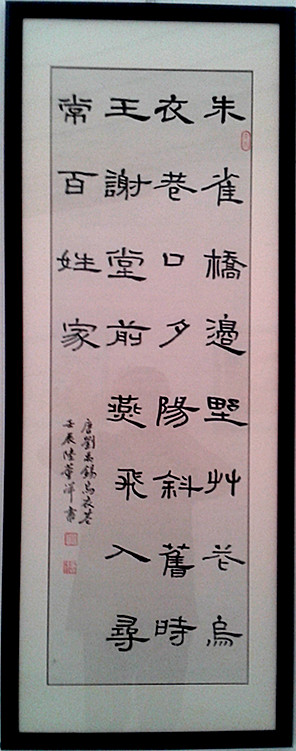 朱雀橋邊野艸花烏
衣巷口夕陽斜舊時
王謝堂前燕飛入尋
常百姓家
唐劉禹錫烏衣巷
壬辰陸華洋書